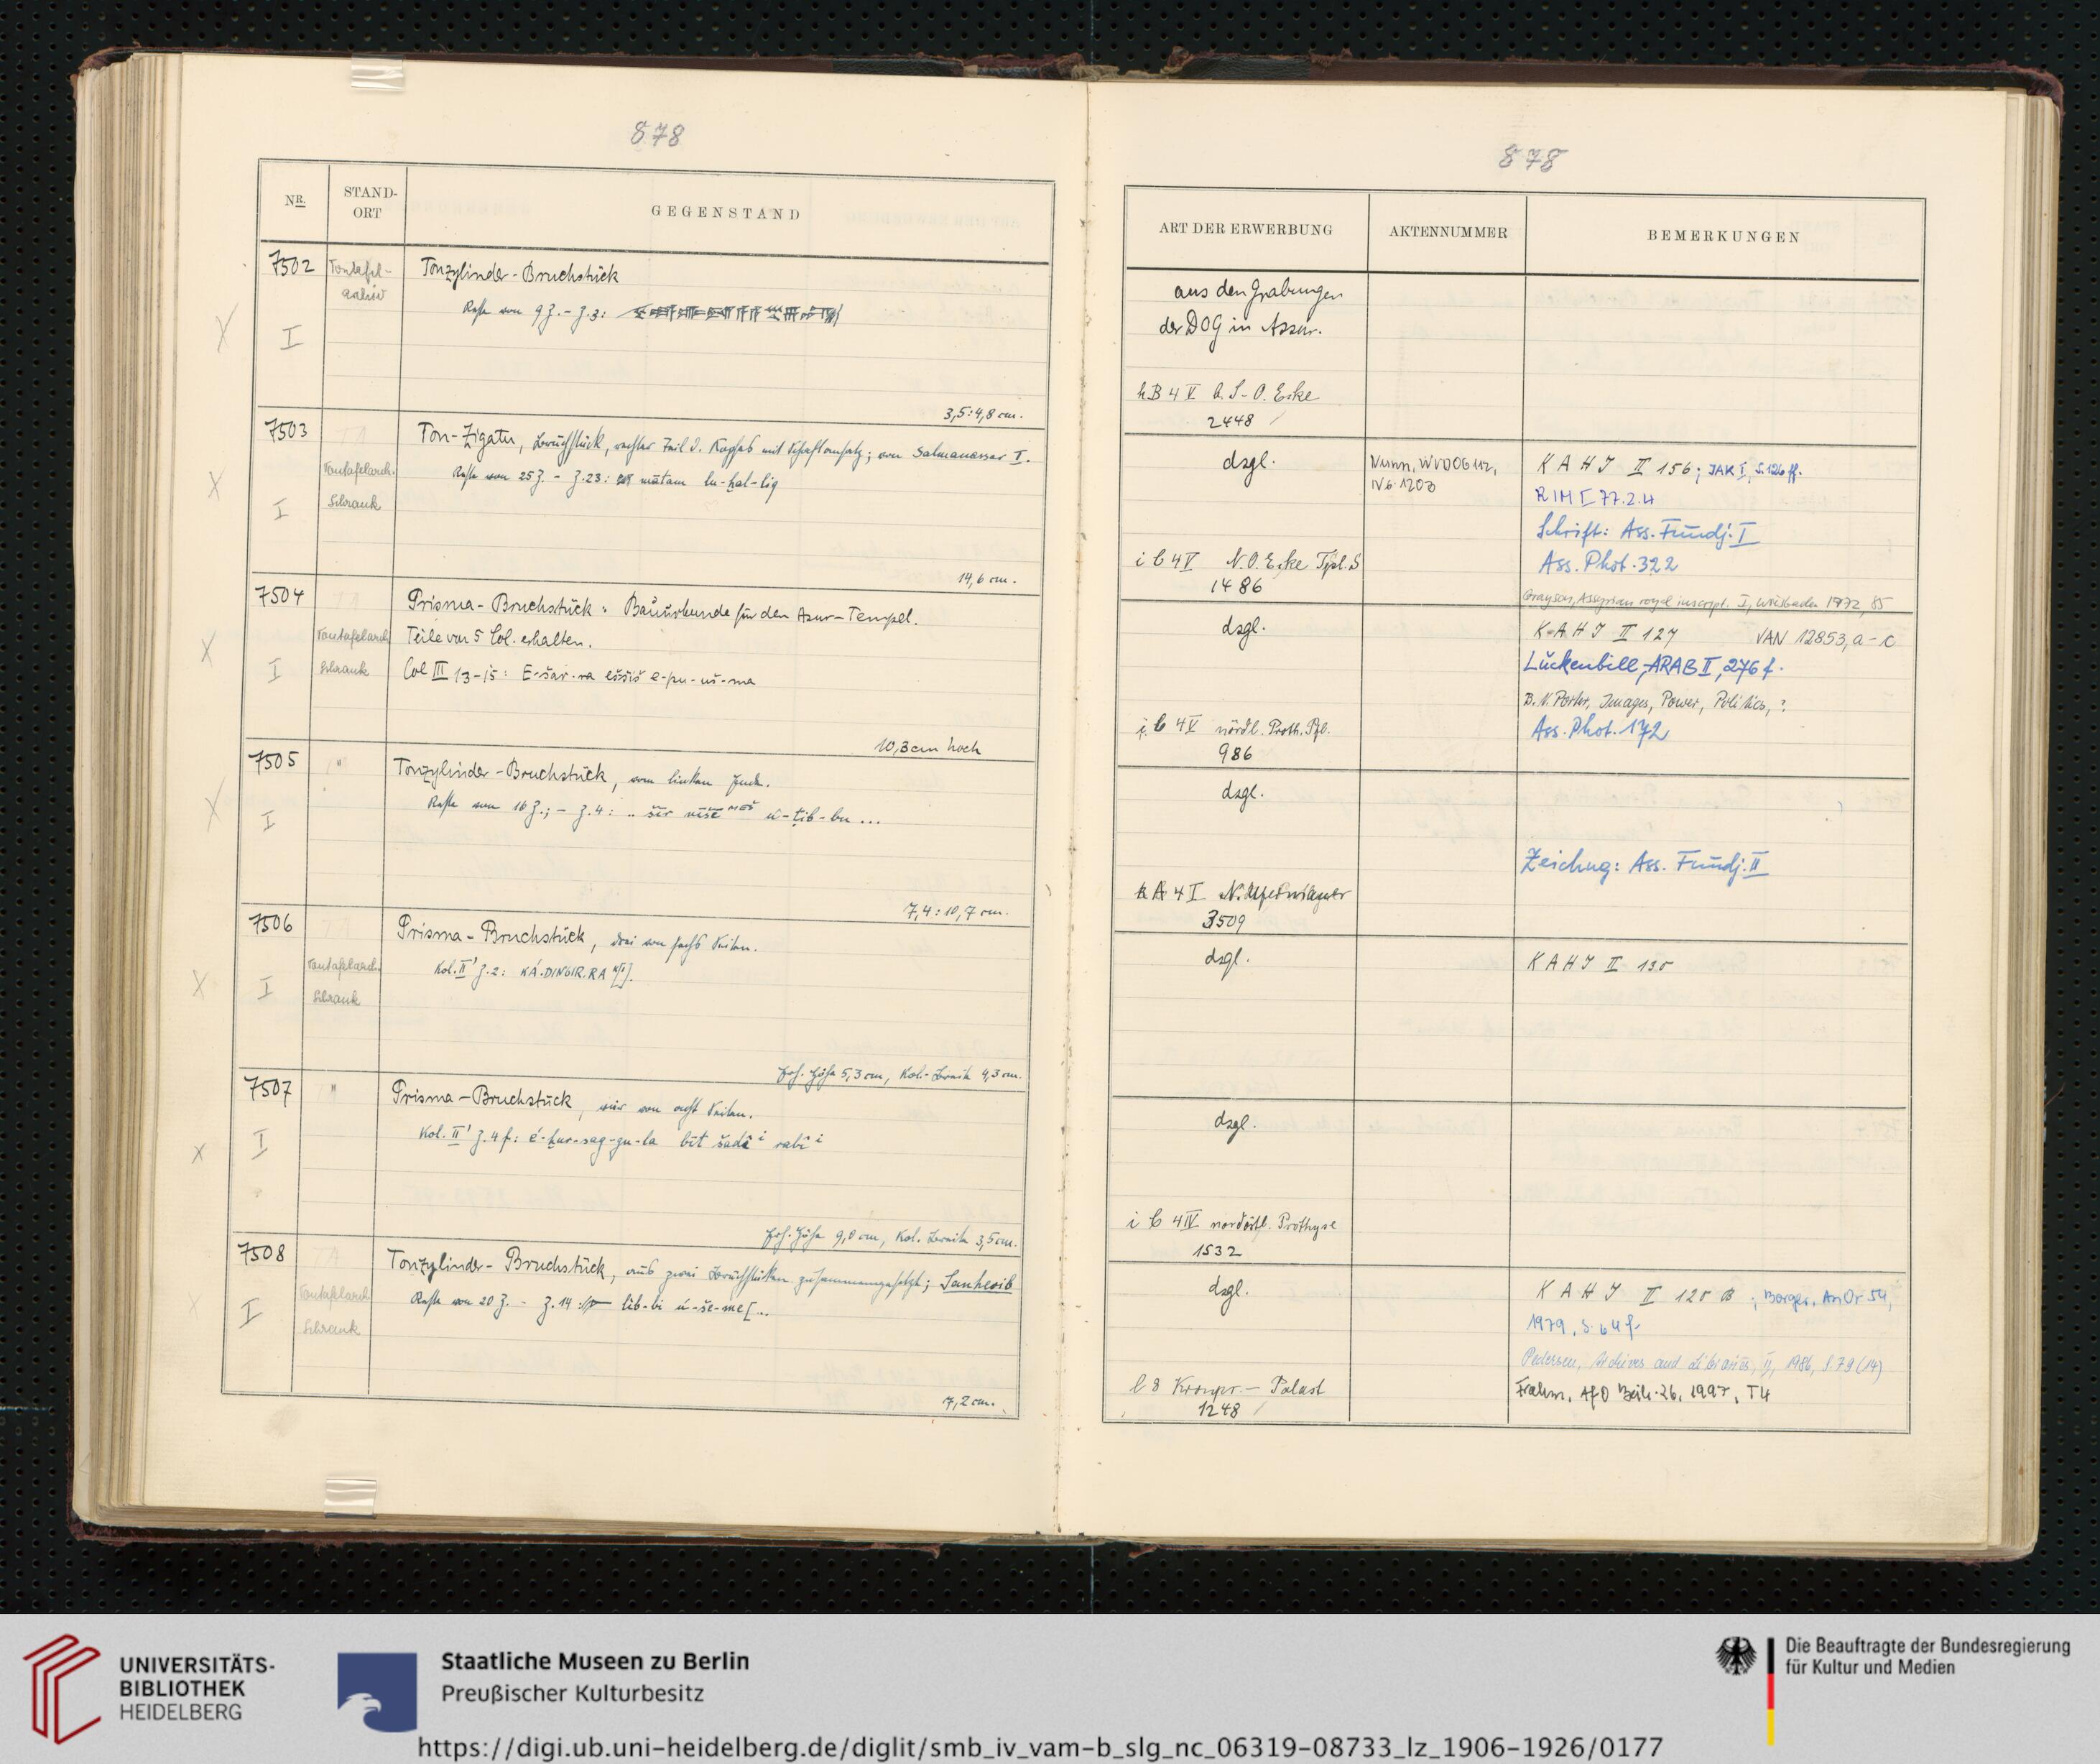 878
NR.
STAND-
ORT
GEGENSTAND
7502
Tontafel-
archiv
Tonzylinder-Bruchstück
Reste von 9 Z. - Z. 3:
I
3,5:4,8 cm.
7503
TA
Tontafelarch.
Schrank
Ton-Zigatu, Bruchstück, rechter Teil d. Kopfes mit Schaftansatz; von Salmanassar I.
Reste von 25 Z. - Z. 23: mātam lu-ḫal-liq
I
14,6 cm.
7504
TA
Tontafelarch.
Schrank
Prisma-Bruchstück: Bauurkunde für den Assur-Tempel.
Teile von 5 Col. erhalten.
Col III 13-15: E-šár-ra eššiš e-pu-uš-ma
I
10,3 cm hoch
7505
"
Tonzylinder-Bruchstück, vom linken Ende.
Reste von 16 Z.; - Z. 4: .. šīr nišē meš ú-ṭib-bu ...
I
7,4:10,7 cm.
7506
TA
Tontafelarch.
Schrank
Prisma-Bruchstück, drei von sechs Seiten.
Kol. II' Z. 2: KÁ.DINGIR.RA k[i].
I
Erh. Höhe 5,3 cm, Kol.-Breite 4,3 cm.
7507
"
Prisma-Bruchstück, vier von acht Seiten.
Kol. II' Z. 4 f: é-ḫur-sag-gu-la bît šadî i rabî i
I
Erh. Höhe 9,0 cm, Kol. Breite 3,5 cm.
7508
TA
Tontafelarch.
Schrank
Tonzylinder-Bruchstück, aus zwei Bruchstücken zusammengesetzt; Sanherib
Reste von 20 Z. - Z. 14: lib-bi ú-še-me[...
I
7,2 cm.
878
ART DER ERWERBUNG
AKTENNUMMER
BEMERKUNGEN
aus den Grabungen
der DOG in Assur.
hB 4 V a. S-O. Ecke
2448
dsgl.
Nunn, WVDOG 112,
Nr. 1203
KAHI II 156; JAK I, S. 126 ff.
RIM I 77.2.4
Schrift: Ass. Fundj. I
Ass. Phot. 322
Grayson, Assyrian royal inscript. I, Wiesbaden 1972, 85
i b 4 V N.O. Ecke Tpl. S
1486
dsgl.
KAHI II 127 VAN 12853, a-c
Luckenbill, ARAB II, 276 f.
B. N. Porter, Images, Power, Politics, ?
Ass. Phot. 172
i b 4 V nördl. Proth. Pfl.
986
dsgl.
Zeichng: Ass. Fundj. II
k A 4 I
3509
dsgl.
KAHI II 130
dsgl.
i b 4 IV nordöstl. Prothyse
1532
dsgl.
KAHI II 120 B; Borger, AnOr 54,
1979, S. 64 f.
Pedersen, Archives and Libraries, II, 1986, S. 79 (14)
Frahm, AfO Beih. 26, 1997, T 4
l 8 Kronpr.-Palast
1248
UNIVERSITÄTS-
BIBLIOTHEK
HEIDELBERG
Staatliche Museen zu Berlin
Preußischer Kulturbesitz
Die Beauftragte der Bundesregierung
für Kultur und Medien
https://digi.ub.uni-heidelberg.de/diglit/smb_iv_vam-b_slg_nc_06319-08733_lz_1906-1926/0177